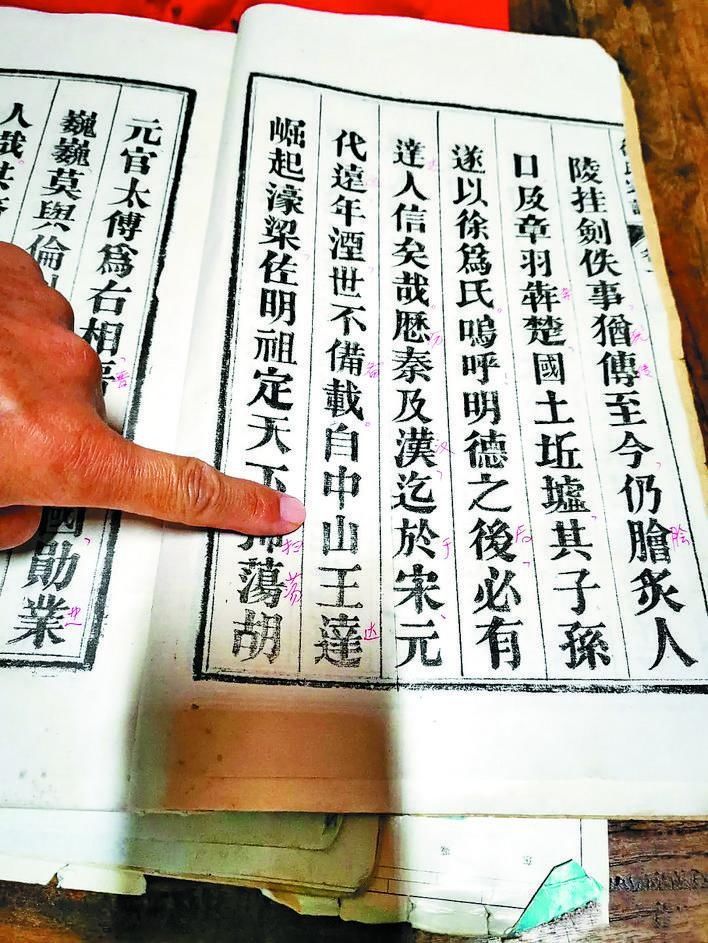 陵挂劍佚事猶傳至今仍膾炙人
口及章羽犇楚國土坵墟其子孫
遂以徐爲氏嗚呼明德之後必有
達人信矣哉厯秦及漢迄於宋元
代遠年湮世不備載自中山王達
崛起濠梁佐明祖定天下掃蕩胡
元官太傅爲右相國勛業
巍巍莫與倫